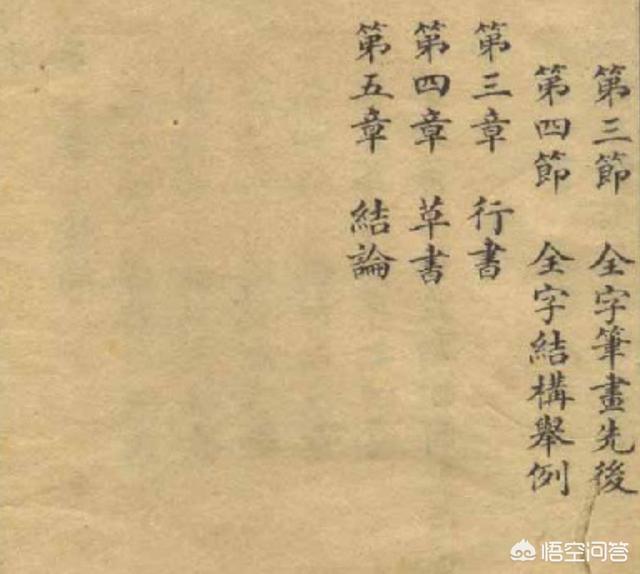 第三節 全字筆畫先後
第四節 全字結構舉例
第三章 行書
第四章 草書
第五章 結論
悟空问答